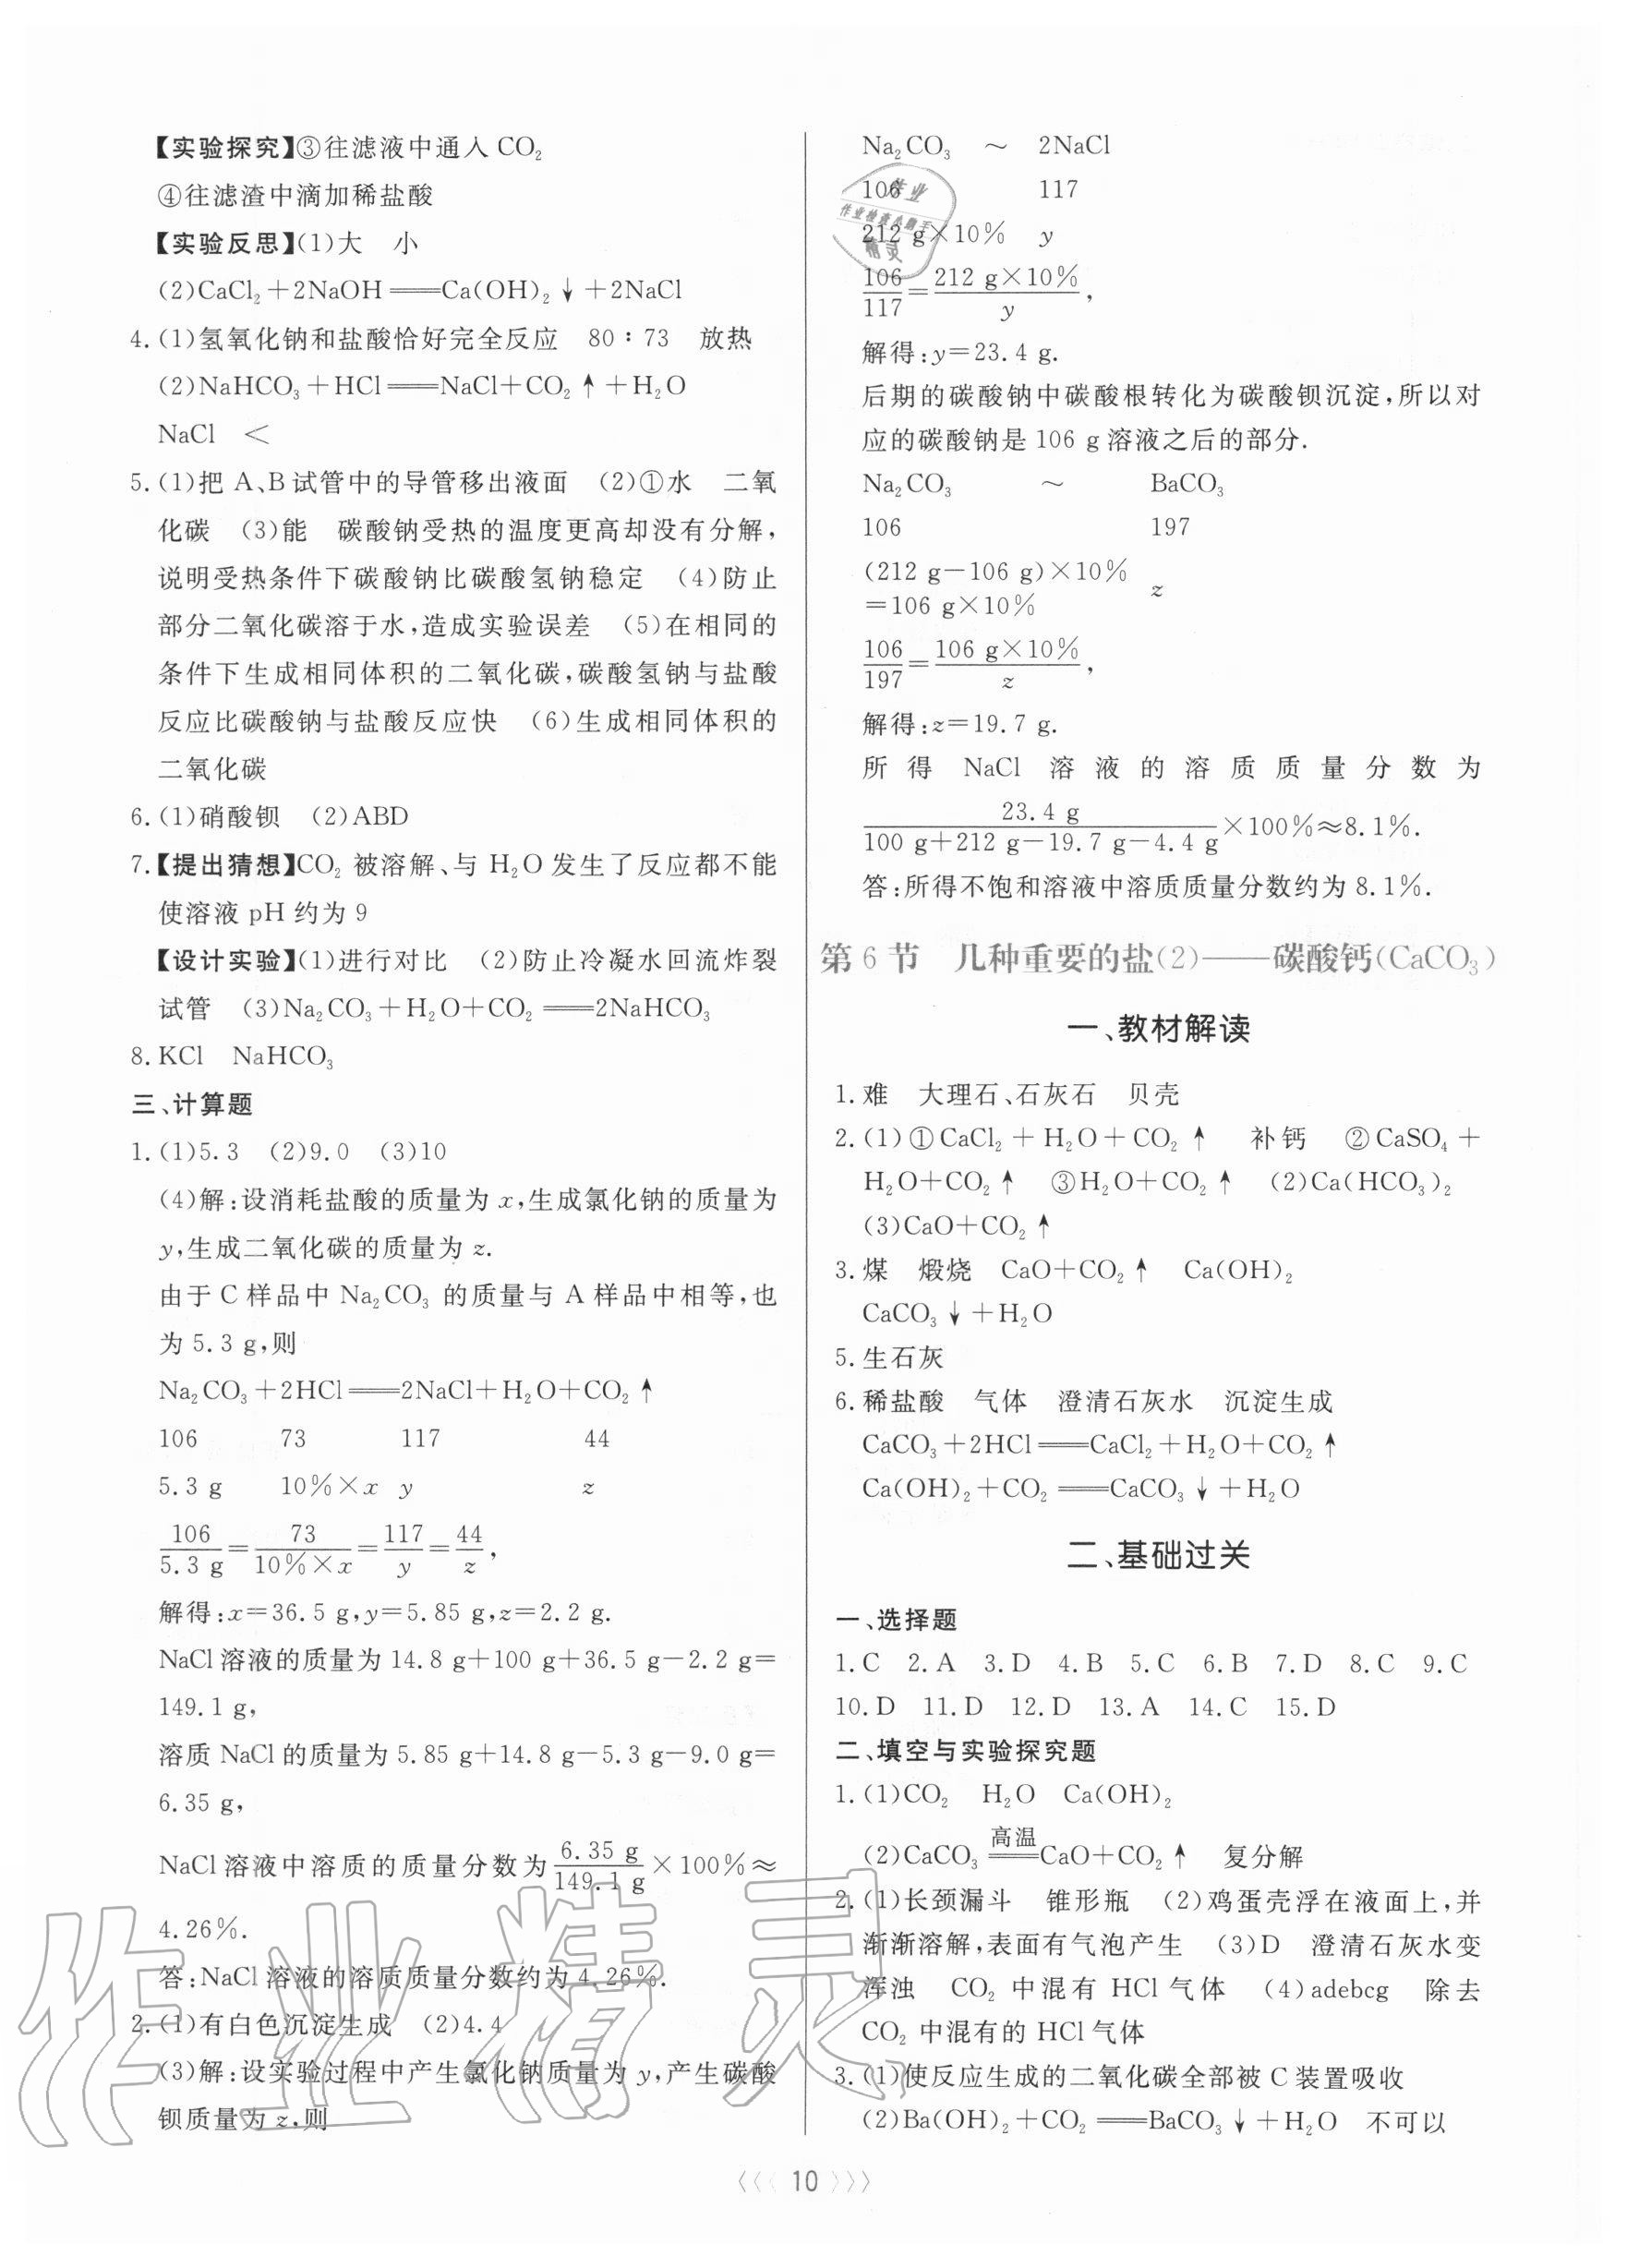 【实验探究】③往滤液中通入 CO₂
④往滤渣中滴加稀盐酸
【实验反思】(1)大 小
(2)CaCl₂+2NaOH══Ca(OH)₂↓+2NaCl
4.(1)氢氧化钠和盐酸恰好完全反应 80∶73 放热
(2)NaHCO₃+HCl══NaCl+CO₂↑+H₂O
NaCl <
5.(1)把 A、B 试管中的导管移出液面 (2)①水 二氧
化碳 (3)能 碳酸钠受热的温度更高却没有分解,
说明受热条件下碳酸钠比碳酸氢钠稳定 (4)防止
部分二氧化碳溶于水,造成实验误差 (5)在相同的
条件下生成相同体积的二氧化碳,碳酸氢钠与盐酸
反应比碳酸钠与盐酸反应快 (6)生成相同体积的
二氧化碳
6.(1)硝酸钡 (2)ABD
7.【提出猜想】CO₂ 被溶解、与 H₂O 发生了反应都不能
使溶液 pH 约为 9
【设计实验】(1)进行对比 (2)防止冷凝水回流炸裂
试管 (3)Na₂CO₃+H₂O+CO₂══2NaHCO₃
8.KCl NaHCO₃
三、计算题
1.(1)5.3 (2)9.0 (3)10
(4)解:设消耗盐酸的质量为 x,生成氯化钠的质量为
y,生成二氧化碳的质量为 z.
由于 C 样品中 Na₂CO₃ 的质量与 A 样品中相等,也
为 5.3 g,则
Na₂CO₃+2HCl══2NaCl+H₂O+CO₂↑
106 73 117 44
5.3 g 10%×x y z
106/5.3 g=73/10%×x=117/y=44/z,
解得:x=36.5 g,y=5.85 g,z=2.2 g.
NaCl 溶液的质量为 14.8 g+100 g+36.5 g−2.2 g=
149.1 g,
溶质 NaCl 的质量为 5.85 g+14.8 g−5.3 g−9.0 g=
6.35 g,
NaCl 溶液中溶质的质量分数为 6.35 g/149.1 g×100%≈
4.26%.
答:NaCl 溶液的溶质质量分数约为 4.26%.
2.(1)有白色沉淀生成 (2)4.4
(3)解:设实验过程中产生氯化钠质量为 y,产生碳酸
钡质量为 z,则
Na₂CO₃ ～ 2NaCl
106 117
212 g×10% y
106/117=212 g×10%/y,
解得:y=23.4 g.
后期的碳酸钠中碳酸根转化为碳酸钡沉淀,所以对
应的碳酸钠是 106 g 溶液之后的部分.
Na₂CO₃ ～ BaCO₃
106 197
(212 g−106 g)×10%
=106 g×10% z
106/197=106 g×10%/z,
解得:z=19.7 g.
所得 NaCl 溶液的溶质质量分数为
23.4 g/100 g+212 g−19.7 g−4.4 g×100%≈8.1%.
答:所得不饱和溶液中溶质质量分数约为 8.1%.
第 6 节 几种重要的盐(2)——碳酸钙(CaCO₃)
一、教材解读
1.难 大理石、石灰石 贝壳
2.(1)①CaCl₂+H₂O+CO₂↑ 补钙 ②CaSO₄+
H₂O+CO₂↑ ③H₂O+CO₂↑ (2)Ca(HCO₃)₂
(3)CaO+CO₂↑
3.煤 煅烧 CaO+CO₂↑ Ca(OH)₂
CaCO₃↓+H₂O
5.生石灰
6.稀盐酸 气体 澄清石灰水 沉淀生成
CaCO₃+2HCl══CaCl₂+H₂O+CO₂↑
Ca(OH)₂+CO₂══CaCO₃↓+H₂O
二、基础过关
一、选择题
1.C 2.A 3.D 4.B 5.C 6.B 7.D 8.C 9.C
10.D 11.D 12.D 13.A 14.C 15.D
二、填空与实验探究题
1.(1)CO₂ H₂O Ca(OH)₂
(2)CaCO₃ 高温══ CaO+CO₂↑ 复分解
2.(1)长颈漏斗 锥形瓶 (2)鸡蛋壳浮在液面上,并
渐渐溶解,表面有气泡产生 (3)D 澄清石灰水变
浑浊 CO₂ 中混有 HCl 气体 (4)adebcg 除去
CO₂ 中混有的 HCl 气体
3.(1)使反应生成的二氧化碳全部被 C 装置吸收
(2)Ba(OH)₂+CO₂══BaCO₃↓+H₂O 不可以
作业精灵
作业
作业检查小助手
精灵
《《《 10 》》》